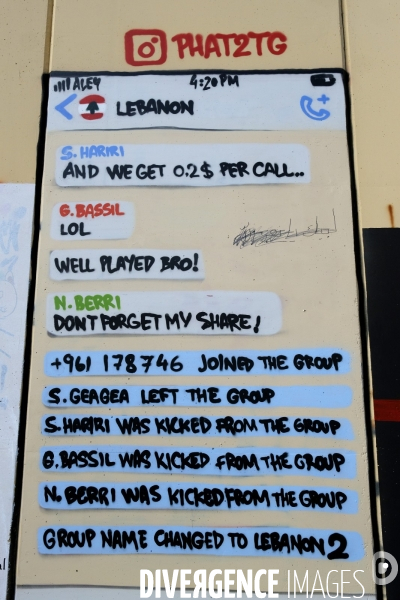 PHAT2TG
ALEY 4:20 PM
LEBANON
S. HARIRI
AND WE GET 0.2$ PER CALL..
G. BASSIL
LOL
WELL PLAYED BRO!
N. BERRI
DONT FORGET MY SHARE!
+961 178746 JOINED THE GROUP
S. GEAGEA LEFT THE GROUP
S. HARIRI WAS KICKED FROM THE GROUP
G. BASSIL WAS KICKED FROM THE GROUP
N. BERRI WAS KICKED FROM THE GROUP
GROUP NAME CHANGED TO LEBANON 2
DIVERGENCE IMAGES